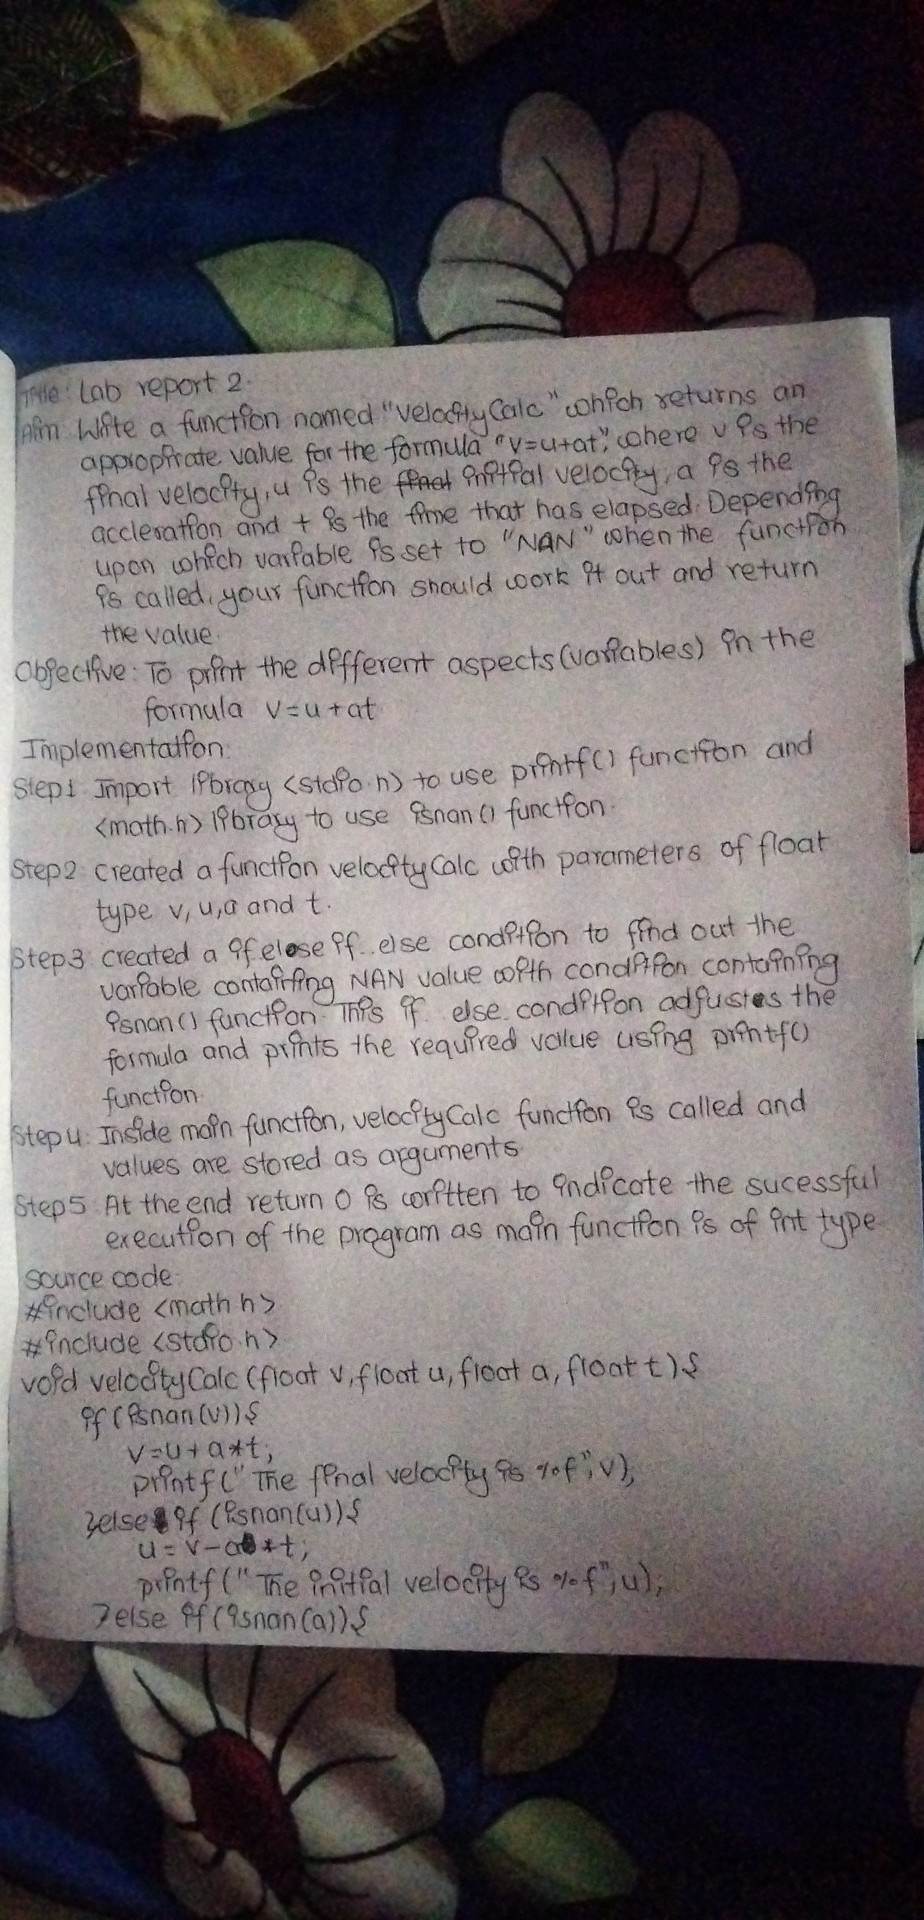 Title: Lab report 2.
Aim: Wite a function named "velocityCalc" which returns an
appropirate value for the formula "v=u+at", where v is the
final velocity, u is the final initial velocity, a is the
accleration and t is the time that has elapsed. Depending
upon which variable is set to "NAN" when the function
is called, your function should work it out and return
the value.
Objective: To print the different aspects(variables) in the
formula v=u+at
Implementation:
Step1 Import library <stdio.h> to use printf() function and
<math.h> library to use isnan() function.
Step2: created a function velocityCalc with parameters of float
type v, u, a and t.
Step3: created a if elose if.. else condition to find out the
variable containing NAN value with condition containing
isnan() function. This if.. else condition adjustes the
formula and prints the required value using printf()
function.
Step4: Inside main function, velocityCalc function is called and
values are stored as arguments.
Step5: At the end return 0 is written to indicate the sucessful
execution of the program as main function is of int type.
source code:
#include <math.h>
#include <stdio.h>
void velocityCalc (float v, float u, float a, float t){
if (isnan(v)){
v=u+a*t;
printf("The final velocity is %f", v);
}else if (isnan(u)){
u=v-a*t;
printf("The initial velocity is %f", u);
}else if(isnan(a)){